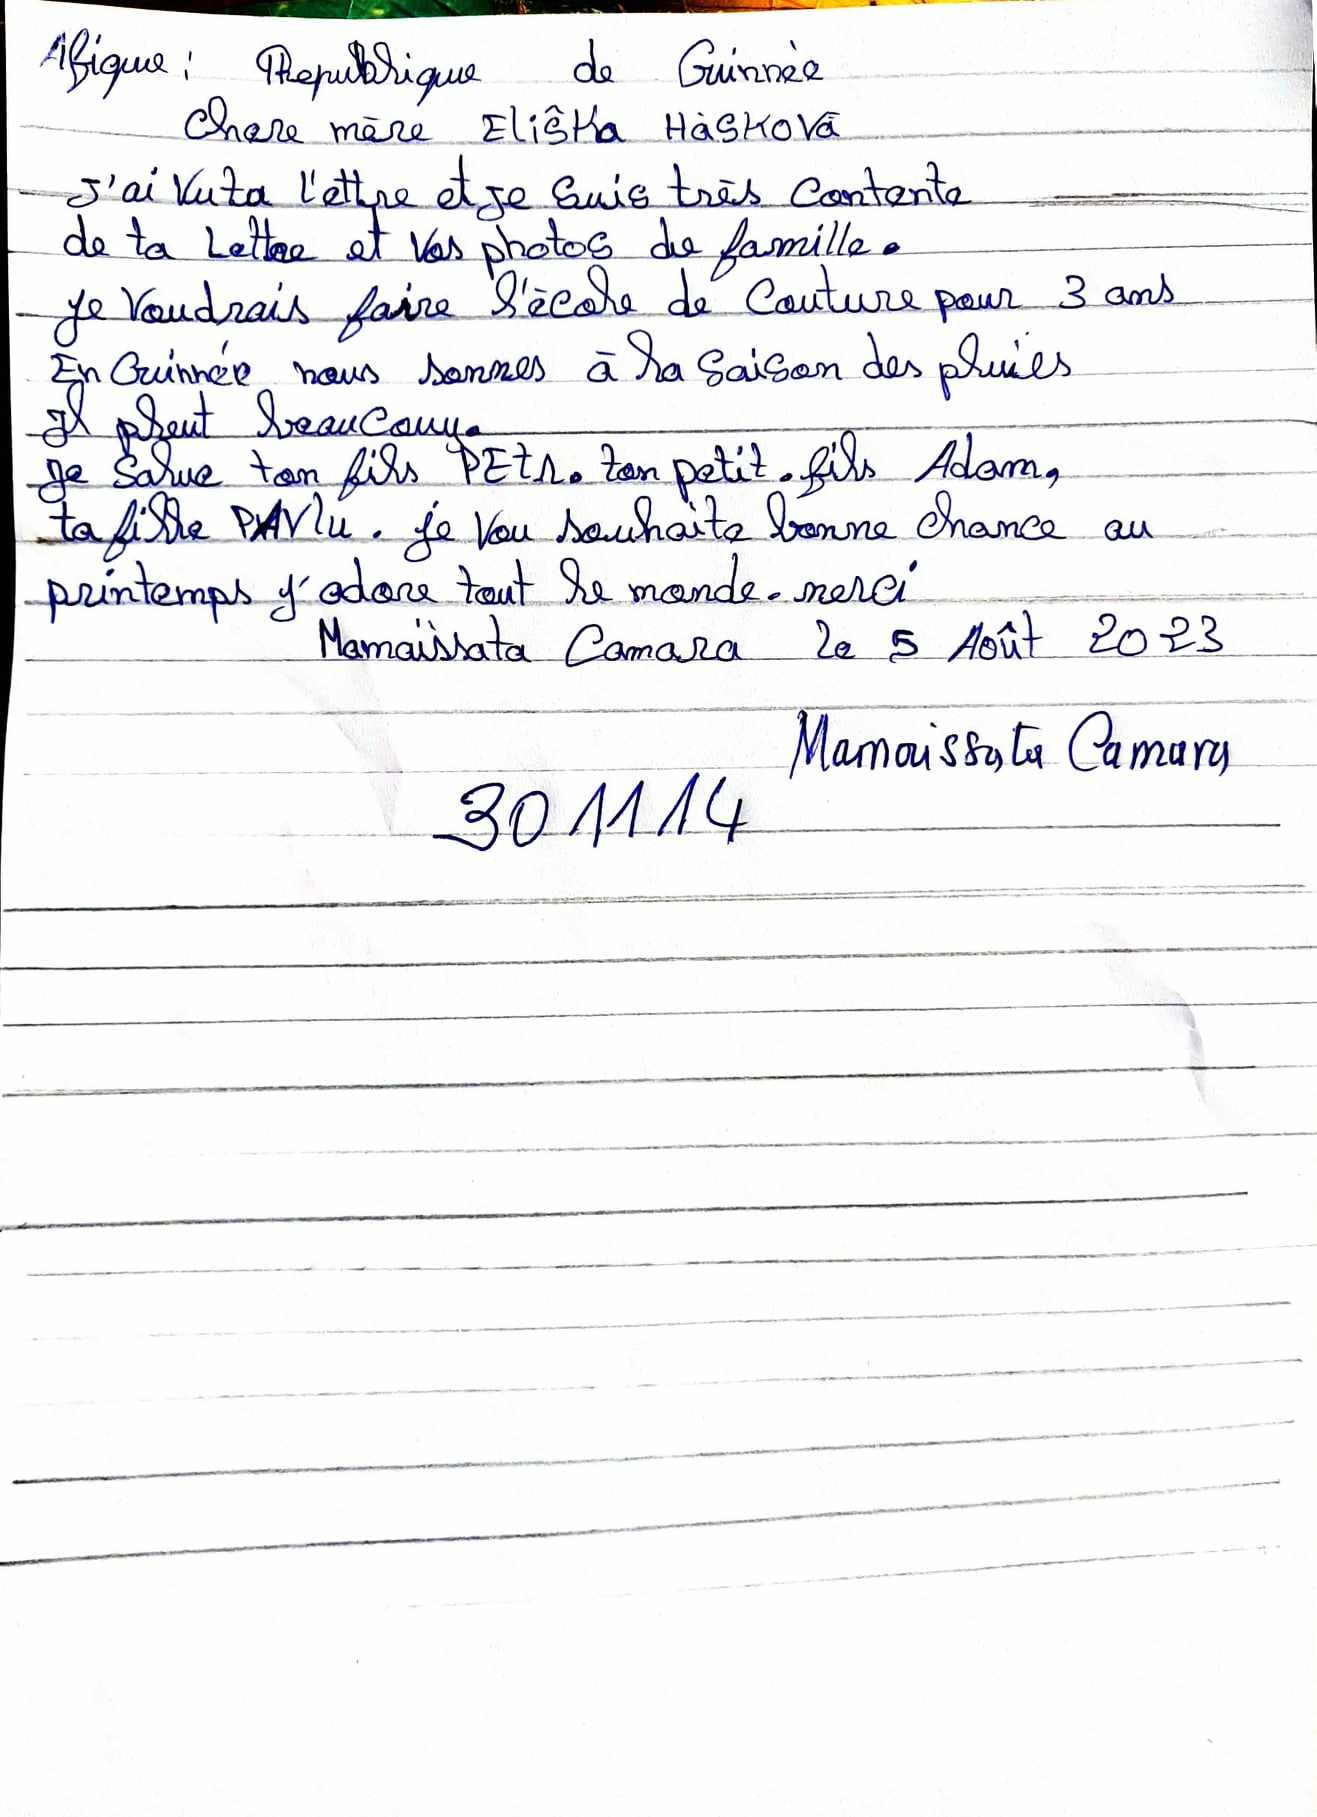 Afique : Republique de Guinnèe
Chere mère Eliŝka Hàskovā
J'ai vu ta l'ettre et je suis très contente
de ta Lettre et vos photos de famille.
je voudrais faire l'ècole de Couture pour 3 ans
En Guinnée nous sommes à la saison des pluies
il pleut beaucoup.
je salue ton fils PEtr. ton petit. fils Adam,
ta fille PAVlu. je vou souhaite bonne chance au
printemps j'adore tout le monde. merci
Mamaïssata Camara le 5 Août 2023
Mamaissata Camara
301114